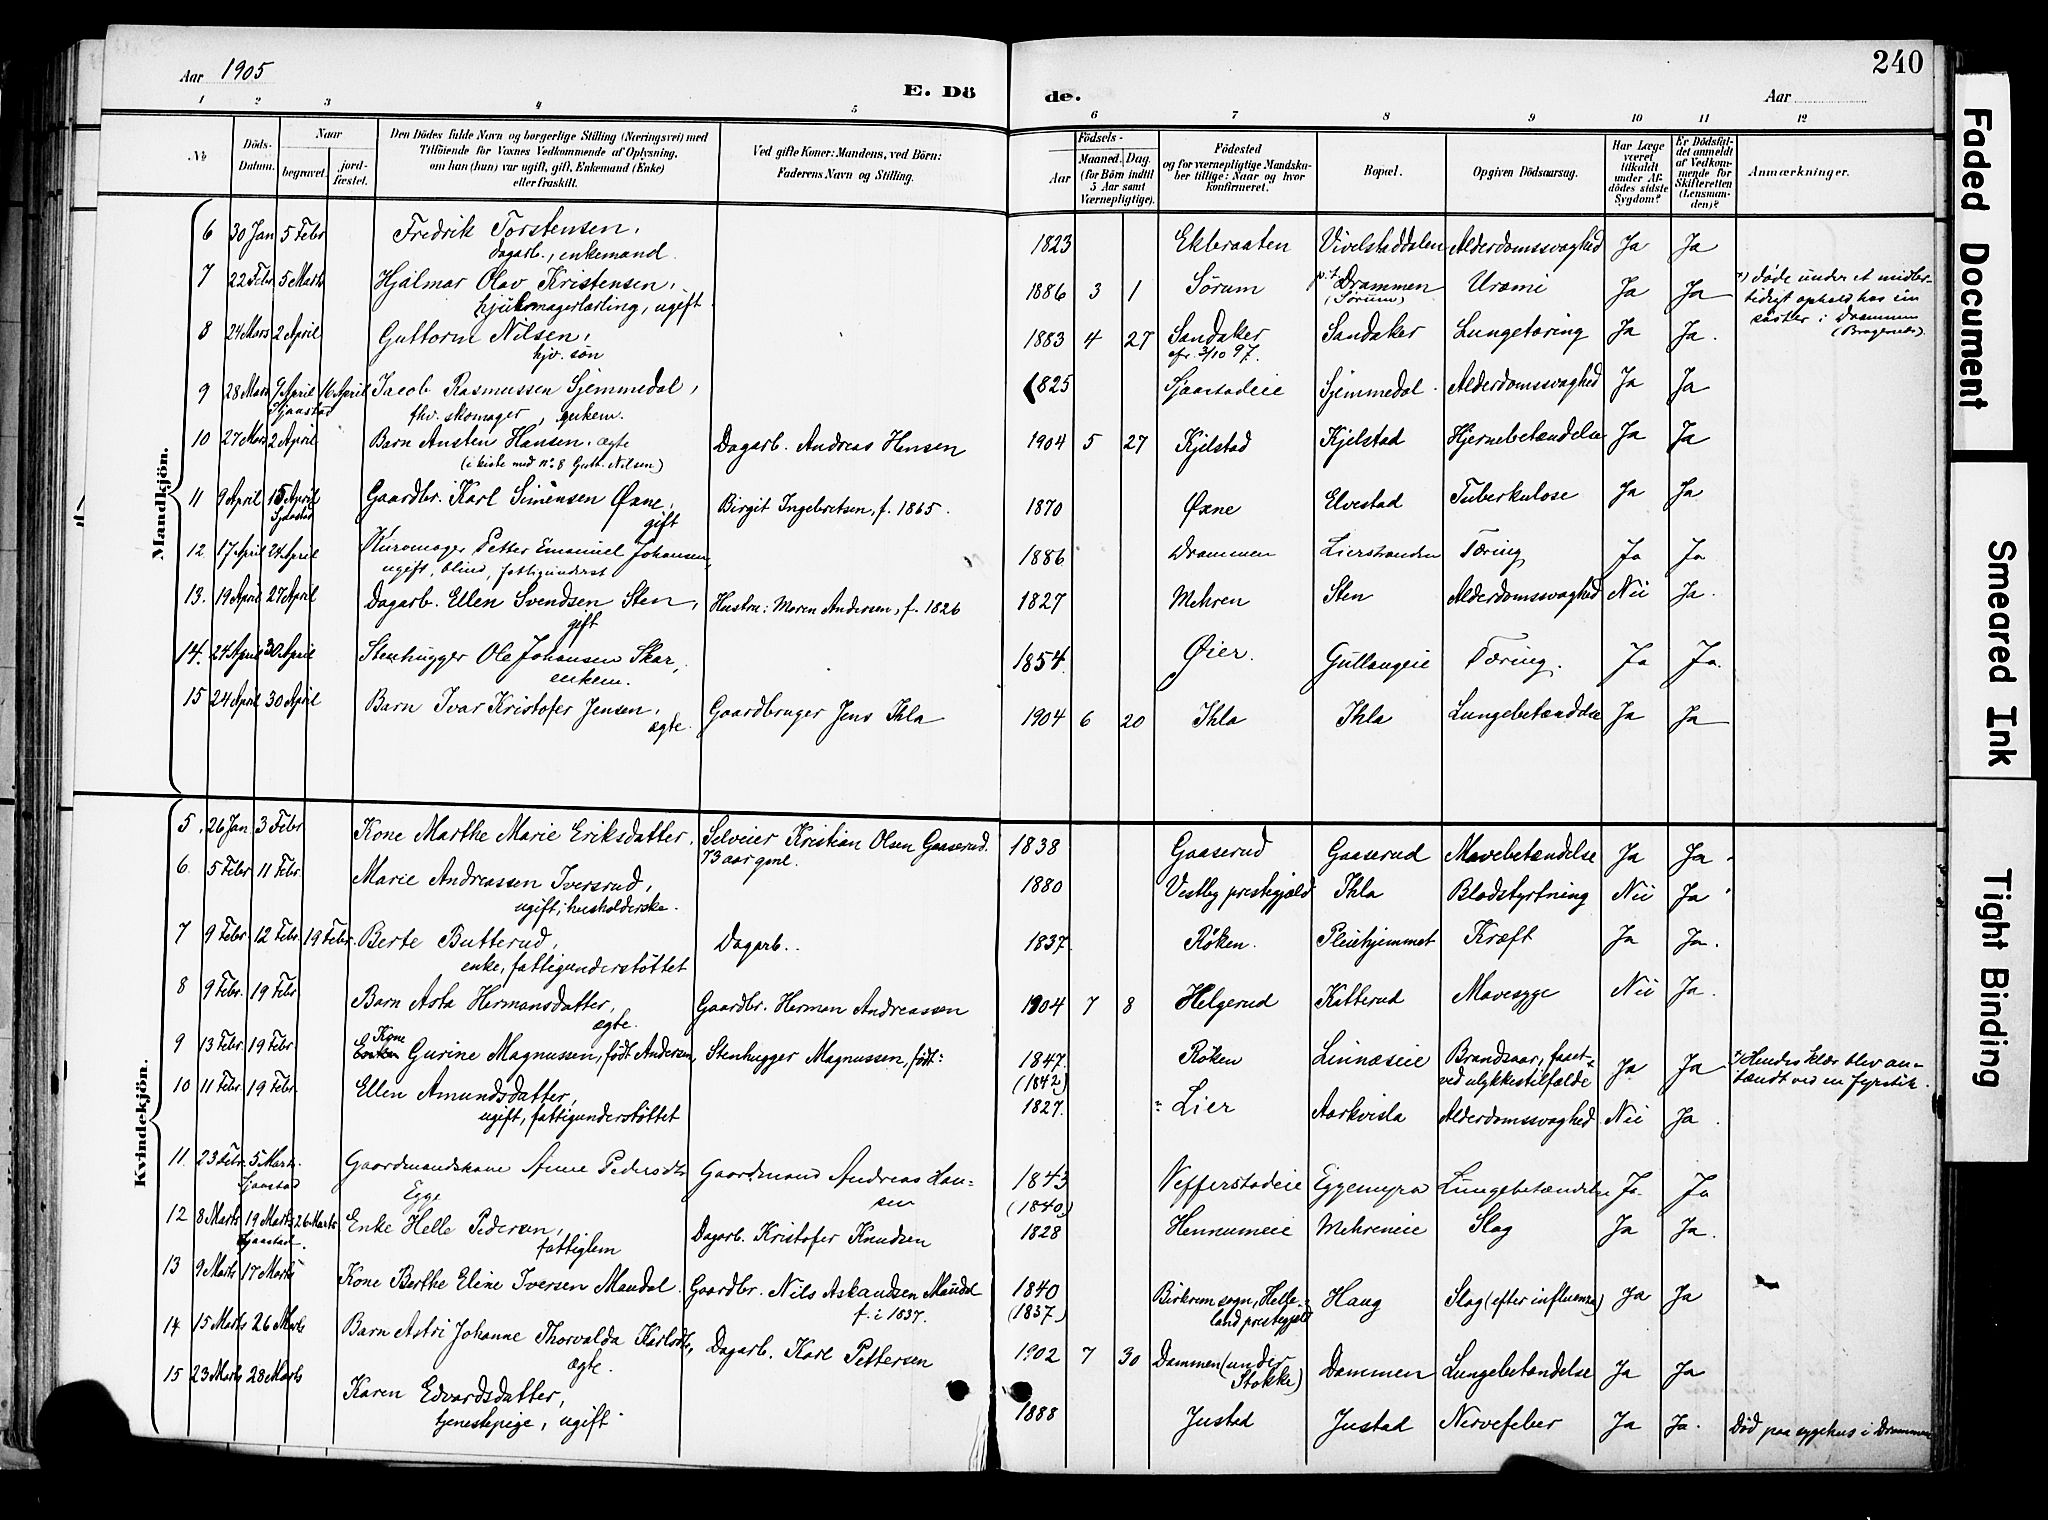 Aar 1905
E. Dö
de.
Aar
240
1 2 3 4 5 6 7 8 9 10 11 12
№
Döds-Datum.
Naar
begravet.
jord-fæstet.
Den Dödes fulde Navn og borgerlige Stilling (Næringsvei) med
Tilföiende for Voxnes Vedkommende af Oplysning,
om han (hun) var ugift, gift, Enkemand (Enke)
eller fraskilt.
Ved gifte Koner: Mandens, ved Börn:
Faderens Navn og Stilling.
Födsels-
Aar
Maaned. Dag.
(for Börn indtil
5 Aar samt
Værnepligtige).
Födested
og for værnepligtige Mandska-
ber tillige: Naar og hvor
konfirmeret.
Bopæl.
Opgiven Dödsaarsag.
Har Læge
været
tilkaldt
under Af-
dödes sidste
Sygdom?
Er Dödsfal-
det anmeldt
af Vedkom-
mende for
Skifteretten
(Lensman-
den)?
Anmærkninger.
Mandkjön.
6 30 Jan 5 Febr Fredrik Torstensen, 1823 Ekbraaten Vivelstaddalen Alderdomssvaghed Ja Ja
Dagarb., enkemand.
7 22 Febr 5 Marts Hjalmar Olav Kristensen, 1886 3 1 Sørum p.t. Drammen Uræmi Ja Ja døde under et midler-
hjulmagerlærling, ugift (Sørum) tidigt ophold hos en
søster i Drammen
(Bragernes)
8 24 Mars 2 April Guttorm Nilsen, 1883 4 27 Sandaker Sandaker Lungetæring Ja Ja.
hjv. søn cfr. 3/10 97.
9 28 Mars 9 April 16 April Jacob Rasmussen Sjemmedal, 1825 Sjaastadeie Sjemmedal Alderdomssvaghed Ja Ja
Sjaastad fhv. skomager, enkem.
10 27 Mars 2 April Barn Austen Hansen, ægte Dagarb. Andreas Hansen 1904 5 27 Kjelstad Kjelstad Hjernebetændelse Ja Ja
(i kiste med no 8 Gutt. Nilsen)
11 9 April 15 April Gaardbr. Karl Simensen Øxne, Birgit Ingebretsen, f. 1865. 1870 Øxne Elvestad Tuberkulose Ja Ja
Sjaastad gift
12 17 April 24 April Kurvmager Petter Emanuel Johansen, 1886 Drammen Lierstranden Tæring Ja Ja
ugift, blind, fattigunderst
13. 19 April 27 April Dagarb. Ellen Svendsen Sten, Hustru: Maren Andersen, f. 1826 1827 Mehren Sten Alderdomssvaghed Nei Ja.
gift
14. 24 April 30 April Stenhugger Ole Johansen Skar, 1854. Øier. Gullaugeie Tæring. Ja Ja.
enkem.
15 24 April 30 April Barn Ivar Kristofer Jensen, Gaardbruger Jens Ihla 1904 6 20 Ihla Ihla Lungebetændelse Ja Ja
ægte.
Kvindekjön.
5. 26 Jan. 3 Febr Kone Marthe Marie Eriksdatter. Selveier Kristian Olsen Gaaserud. 1838 Gaaserud Gaaserud Mavebetændelse Ja Ja
73 aar gml.
6 5 Febr 11 Febr. Marie Andreassen Iversrud, 1880 Vestby prestegjeld Ihla Blodstyrtning Nei Ja
ugift, husholderske.
7 9 Febr 12 Febr. 19 Febr. Berte Butterud, Dagarb. 1837. Røken. Pleiehjemmet Kræft Ja Ja.
enke, fattigunderstøttet
8 9 Febr. 19 Febr Barn Asta Hermansdatter, Gaardbr. Herman Andreassen 1904 7 8 Helgerud Katterud Mavesyge Nei Ja.
ægte.
9 13 Febr. 19 Febr. Kone Gurine Magnussen, født Andersen, Stenhugger Magnussen, født: 1847. Røken Linnæseie Brandsaar, faaet Ja Ja Hendes klær blev an-
Enke (1842) ved ulykkestilfælde tændt ved en fyrstik.
10 11 Febr. 19 Febr. Ellen Amundsdatter, 1827. Lier Aarkvisla Alderdomssvaghed Nei Ja.
ugift, fattigunderstøttet
11. 23 Febr. 5 Marts. Gaardmandskone Anne Pedersdtr Gaardmand Andreas Han- 1843 Nefferstadeie Eggemyra Lungebetændelse Ja. Ja
Sjaastad Egge sen (1840)
12 8 Marts 19 Marts 26 Marts Enke Helle Pedersen, Dagarb. Kristofer Knudsen 1828 Hennumeie Mehreneie Slag Ja Ja.
Sjaastad. fattiglem
13 9 Marts 17 Marts Kone Berthe Eline Iversen Maudal. Gaardbr. Nils Askandsen Maudal 1840 Birkrem sogn, Helle- Haug Slag (efter influenza) Ja Ja
f. i 1837. (1837.) land prestegjeld
14 15 Marts 26 Marts Barn Astri Johanne Thorvalda Karlsdtr, Dagarb. Karl Pettersen 1902 7 30 Dammen (under Dammen Lungebetændelse Ja Ja
ægte. Stokke)
15 23 Marts 28 Marts Karen Edvardsdatter, 1888 Justad Justad Nervefeber Ja Ja. Død paa sygehus i Drammen
tjenestepige, ugift
Faded Document
Smeared Ink
Tight Binding